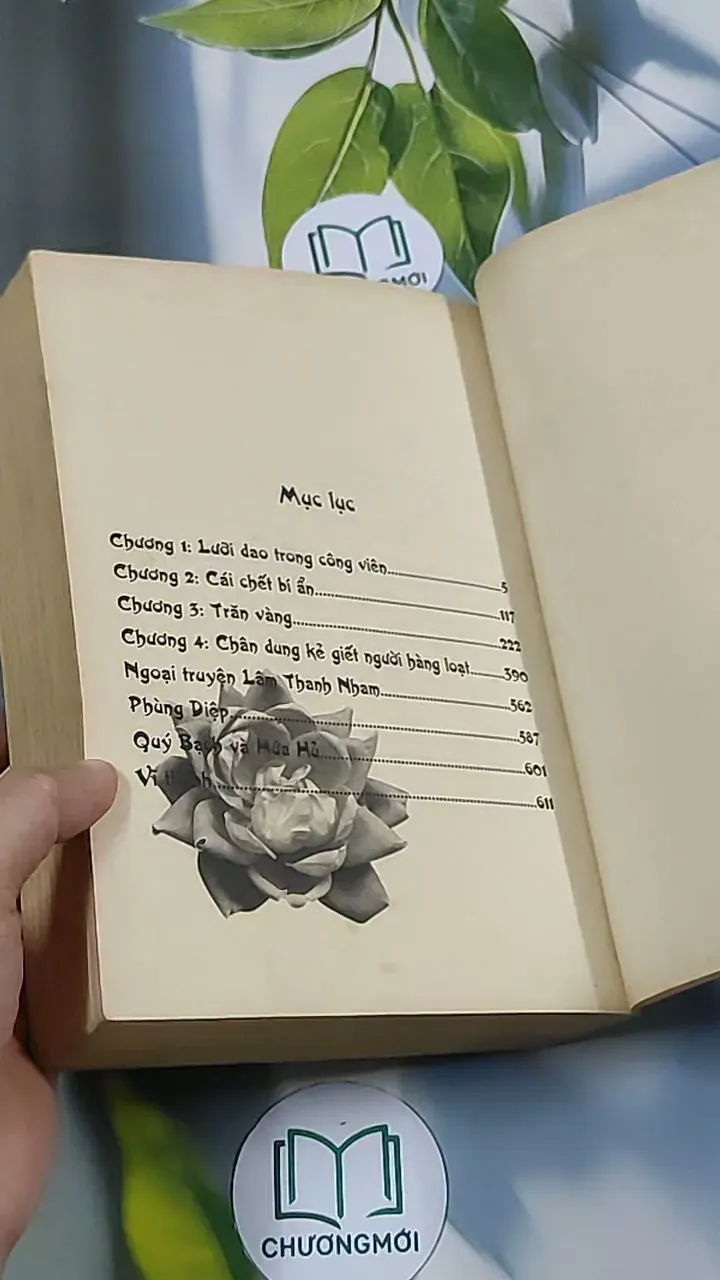 MỚI
Mục lục
Chương 1: Lưỡi dao trong công viên..........5
Chương 2: Cái chết bí ẩn..........117
Chương 3: Trăn vàng..........222
Chương 4: Chân dung kẻ giết người hàng loạt..........390
Ngoại truyện Lâm Thanh Nham..........562
Phùng Diệp..........587
Quý Bạch và Hứa Hủ..........601
..........611
CHƯƠNGMỚI